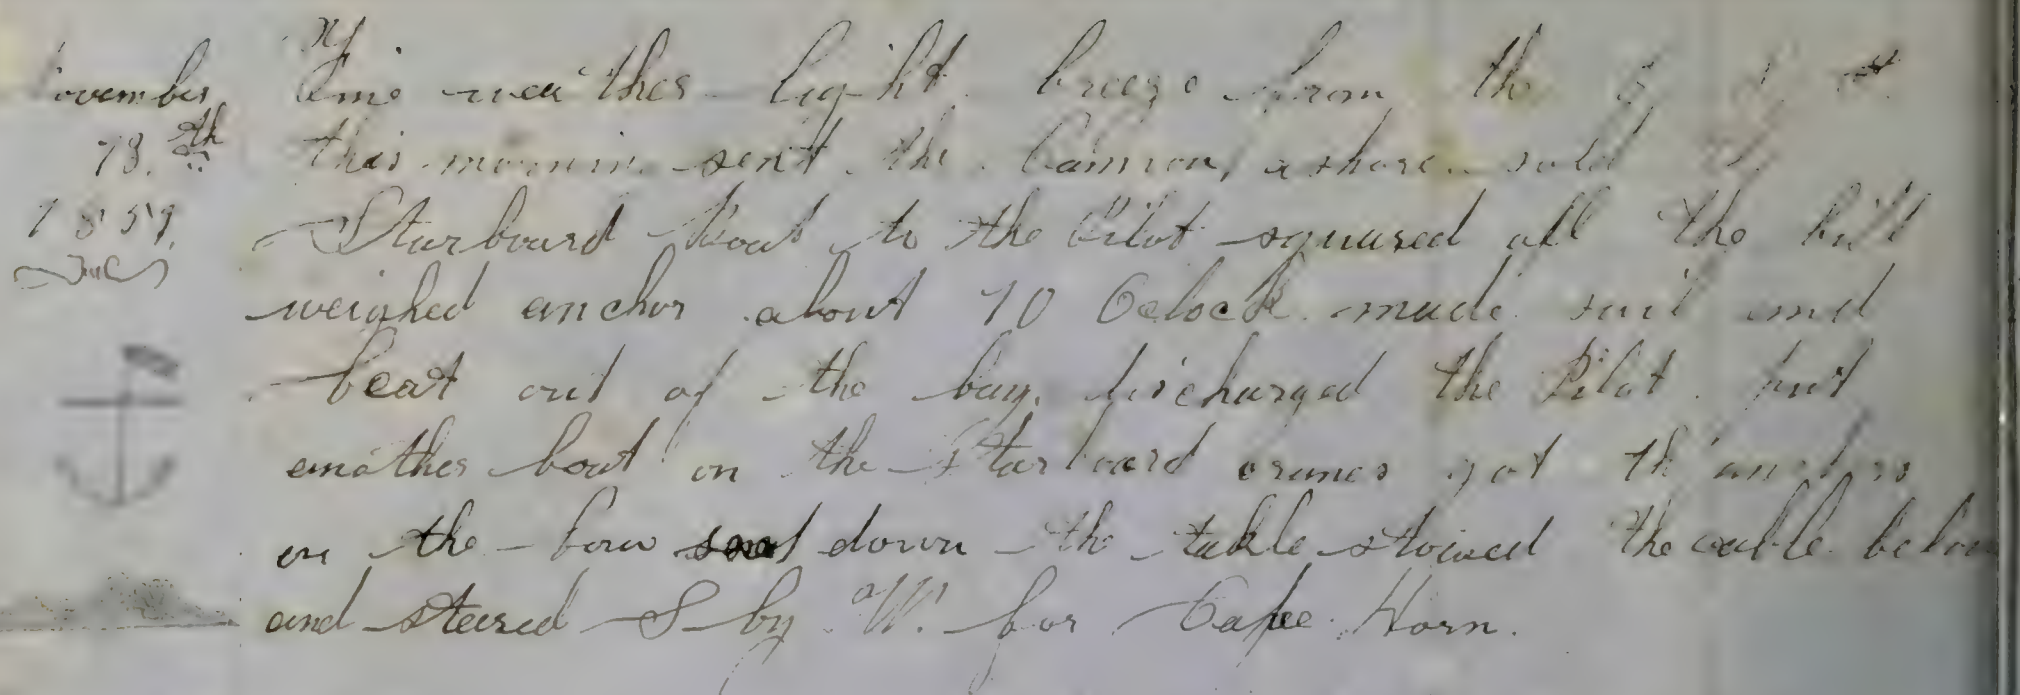 November Fine weather light breeze from the
13.th this mornin sent the Cannon, a shore sold
1859. Starboard Boat to the Pilot squared all the bill
weighed anchor about 10 Oclock made sail and
beat out of the bay. discharged the Pilot. put
another boat on the Starboard cranes got the anchors
on the bow sent down the takle stowed the cable below
and steered S by W. for Cape Horn.